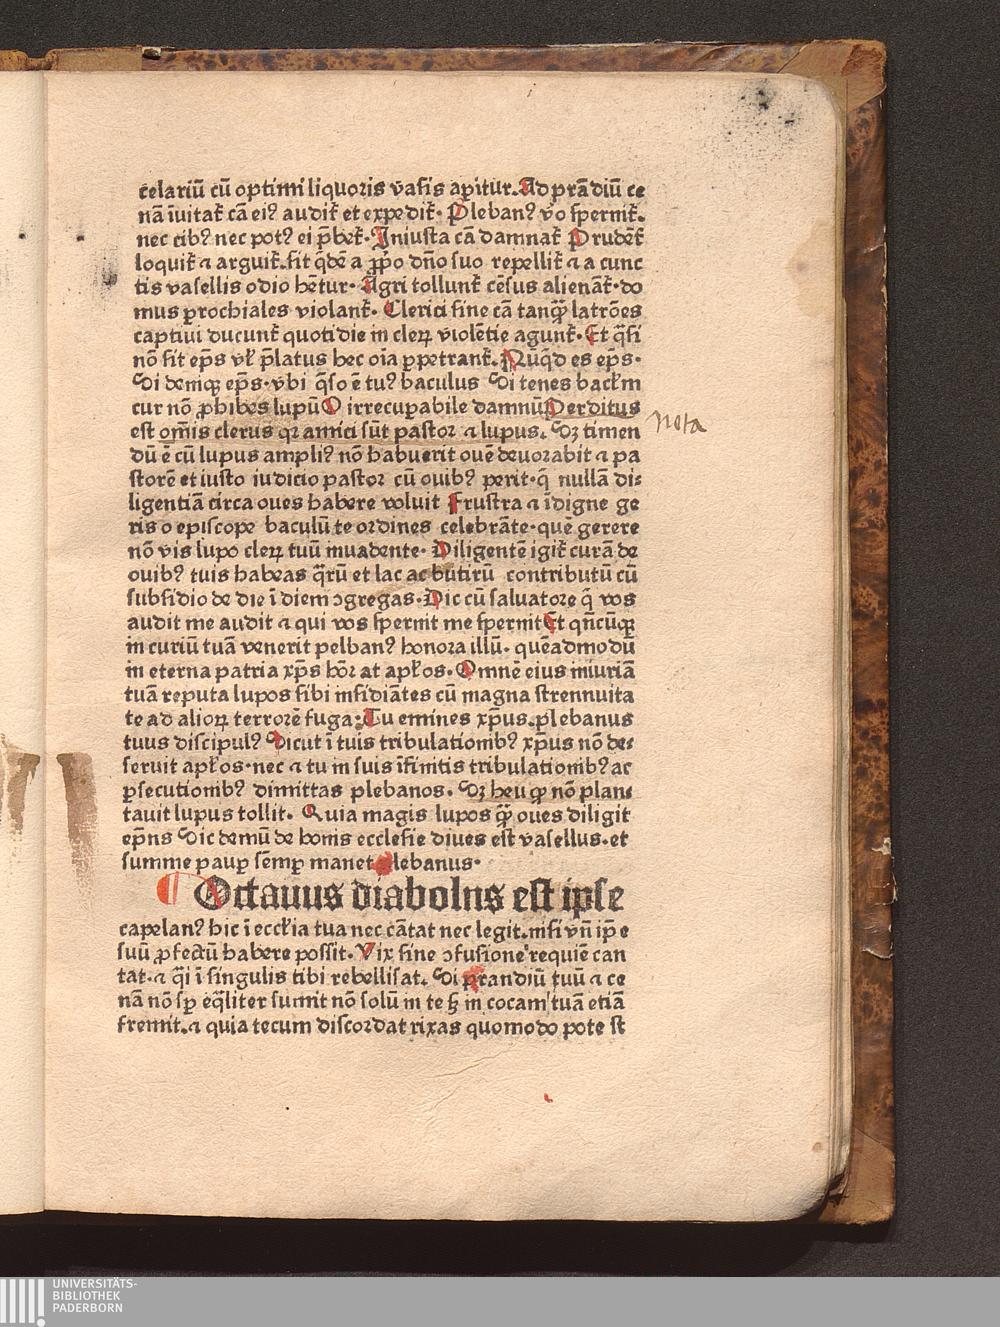 celariū cū optimi liquoris vasis aꝑitur. Ad prādiū ce
nā īuitat᷑ cā eiꝰ audit᷑ et expedit᷑. Plebanꝰ v̄o spernit᷑.
nec cibꝰ nec potꝰ ei p̄bet᷑. Iniusta cā damnat᷑ Prudēt᷑
loquit᷑ ⁊ arguit᷑. sit q̄dē a ꝓp̄o dn̄o suo repellit᷑ ⁊ a cunc
tis vasellis odio hētur. Agri tollunt᷑ cēsus alienāt᷑. do
mus ꝑrochiales violant᷑. Clerici sine cā tanqȝ̄ latrōes
captiui ducunt᷑ quotidie in cleꝝ violētie agunt᷑. Et q̄si
nō sit ep̄s vł p̄latus hec oīa ꝑpetrant᷑. Nūq̄d es ep̄s.
Si demqȝ ep̄s. vbi q̄so ē tuꝰ baculus Si tenes bacłm
cur nō ꝓhibes lupū O irrecuꝑabile damnū Perditus
est om̄is clerus qꝛ amici sūt pastor ⁊ lupus. Sȝ timen
dū ē cū lupus ampliꝰ nō habuerit ouē deuorabit ⁊ pa
storē et iusto iudicio pastor cū ouibꝰ perit. q̄ nullā di⸗
ligentiā circa oues habere voluit Frustra ⁊ īdigne ge
ris o episcope baculū te ordines celebrāte. quē gerere
nō vis lupo cleꝝ tuū inuadente. Diligentē igit᷑ curā de
ouibꝰ tuis habeas q̄rū et lac ac butirū contributū cū
subsidio de die ī diem ↄgregas. Dic cū saluatore q̄ vos
audit me audit ⁊ qui vos spernit me spernit Et qn̄cūqȝ
in curiū tuā venerit pelbanꝰ honora illū. quēadmodū
in eterna patria xp̄s hōrat apłos. Omnē eius iniuriā
tuā reputa lupos sibi insidiātes cū magna strennuita
te ad alioꝝ terrorē fuga: Tu emines xp̄us. plebanus
tuus discipulꝰ Sicut ī tuis tribulationibꝰ xp̄us nō de⸗
seruit apłos. nec ⁊ tu in suis īfinitis tribulationibꝰ ac
ꝑsecutionibꝰ dimittas plebanos. Sȝ heu qȝ nō plan⸗
tauit lupus tollit. Quia magis lupos qȝ̄ oues diligit
ep̄ns Sic demū de bonis ecclesie diues est vasellus. et
summe pauꝑ sēmꝑ manet plebanus.
¶ Octauus diabolns est ipse
capelanꝰ hic ī eccłia tua nec cātat nec legit. nisi vn̄ ip̄e
suū ꝓfectū habere possit. Vix sine ↄfusione requiē can
tat. ⁊ q̄i ī singulis tibi rebellisat. Si prandiū tuū ⁊ ce
nā nō sꝑ eq̄liter sumit nō solū in te sȝ in cocam tuā etiā
fremit. ⁊ quia tecum discordat rixas quomodo pote st
nota
UNIVERSITÄTS-
BIBLIOTHEK
PADERBORN